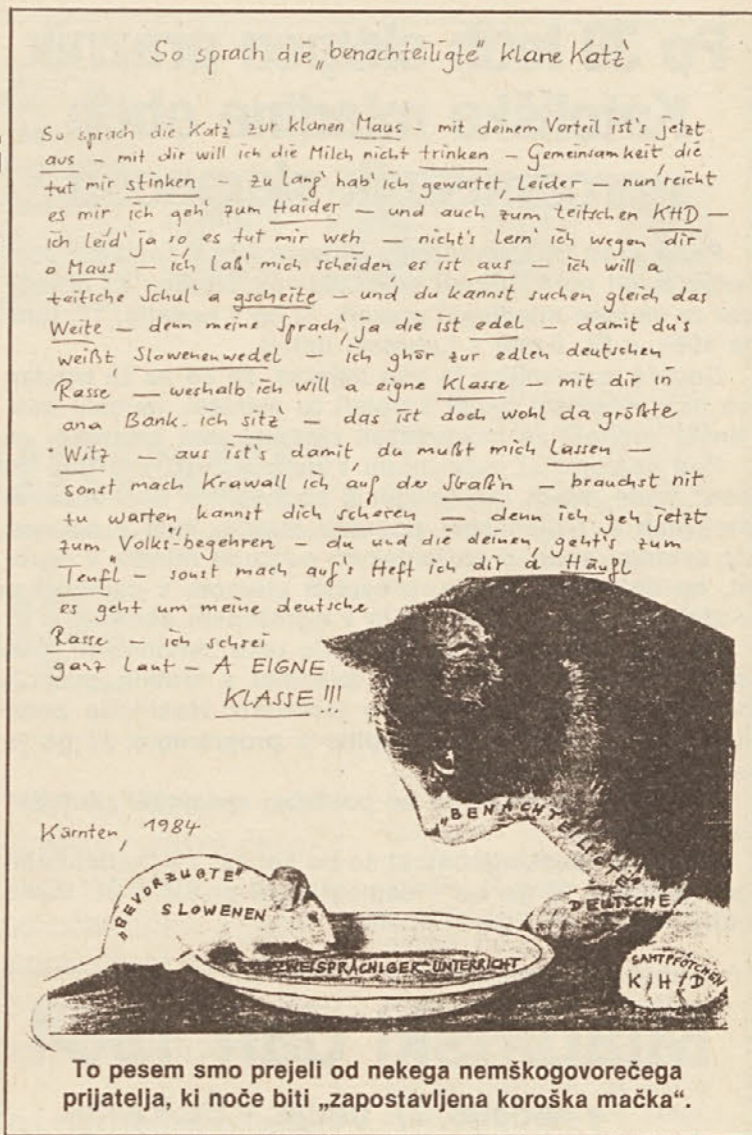 So sprach die „benachteiligte" klane Katz'
So sprach die Katz' zur klanen Maus – mit deinem Vorteil ist's jetzt
aus – mit dir will ich die Milch nicht trinken – Gemeinsamkeit, die
tut mir stinken – zu lang' hab' ich gewartet, leider – nun reicht
es mir ich geh' zum Haider – und auch zum teitschen KHD –
ich leid' ja so, es tut mir weh – nicht's lern' ich wegen dir
o Maus – ich laß' mich scheiden, es ist aus – ich will a
teitsche Schul' a gscheite – und du kannst suchen gleich das
Weite – denn meine Sprach', ja die ist edel – damit du's
weißt, Slowenenwedel – ich ghör zur edlen deutschen
Rasse – weshalb ich will a eigne Klasse – mit dir in
ana Bank ich sitz' – das ist doch wohl da größte
Witz – aus ist's damit, du mußt mich lassen –
sonst mach Krawall ich auf der Straß'n – brauchst nit
zu warten kannst dich scheren – denn ich geh jetzt
zum Volks-"begehren" – du und die deinen, geht's zum
Teufl – sonst mach auf's Heft ich dir a Häufl
es geht um meine deutsche
Rasse – ich schrei
ganz laut – A EIGNE
KLASSE!!!
Kärnten, 1984
„BENACHTEILIGTE"
DEUTSCHE
„BEVORZUGTE"
SLOWENEN
ZWEISPRACHIGER UNTERRICHT
SAMTPFÖTCHEN
K/H/D
To pesem smo prejeli od nekega nemškogovorečega
prijatelja, ki noče biti „zapostavljena koroška mačka".